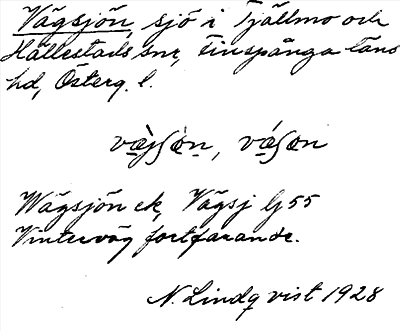 Vägsjön, sjö i Tjällmo och
Hällestads snr, Finspånga läns
hd, Österg. l.
Wägsjön ek, Vägsj lj 55
Vinterväg fortfarande.
N. Lindqvist 1928